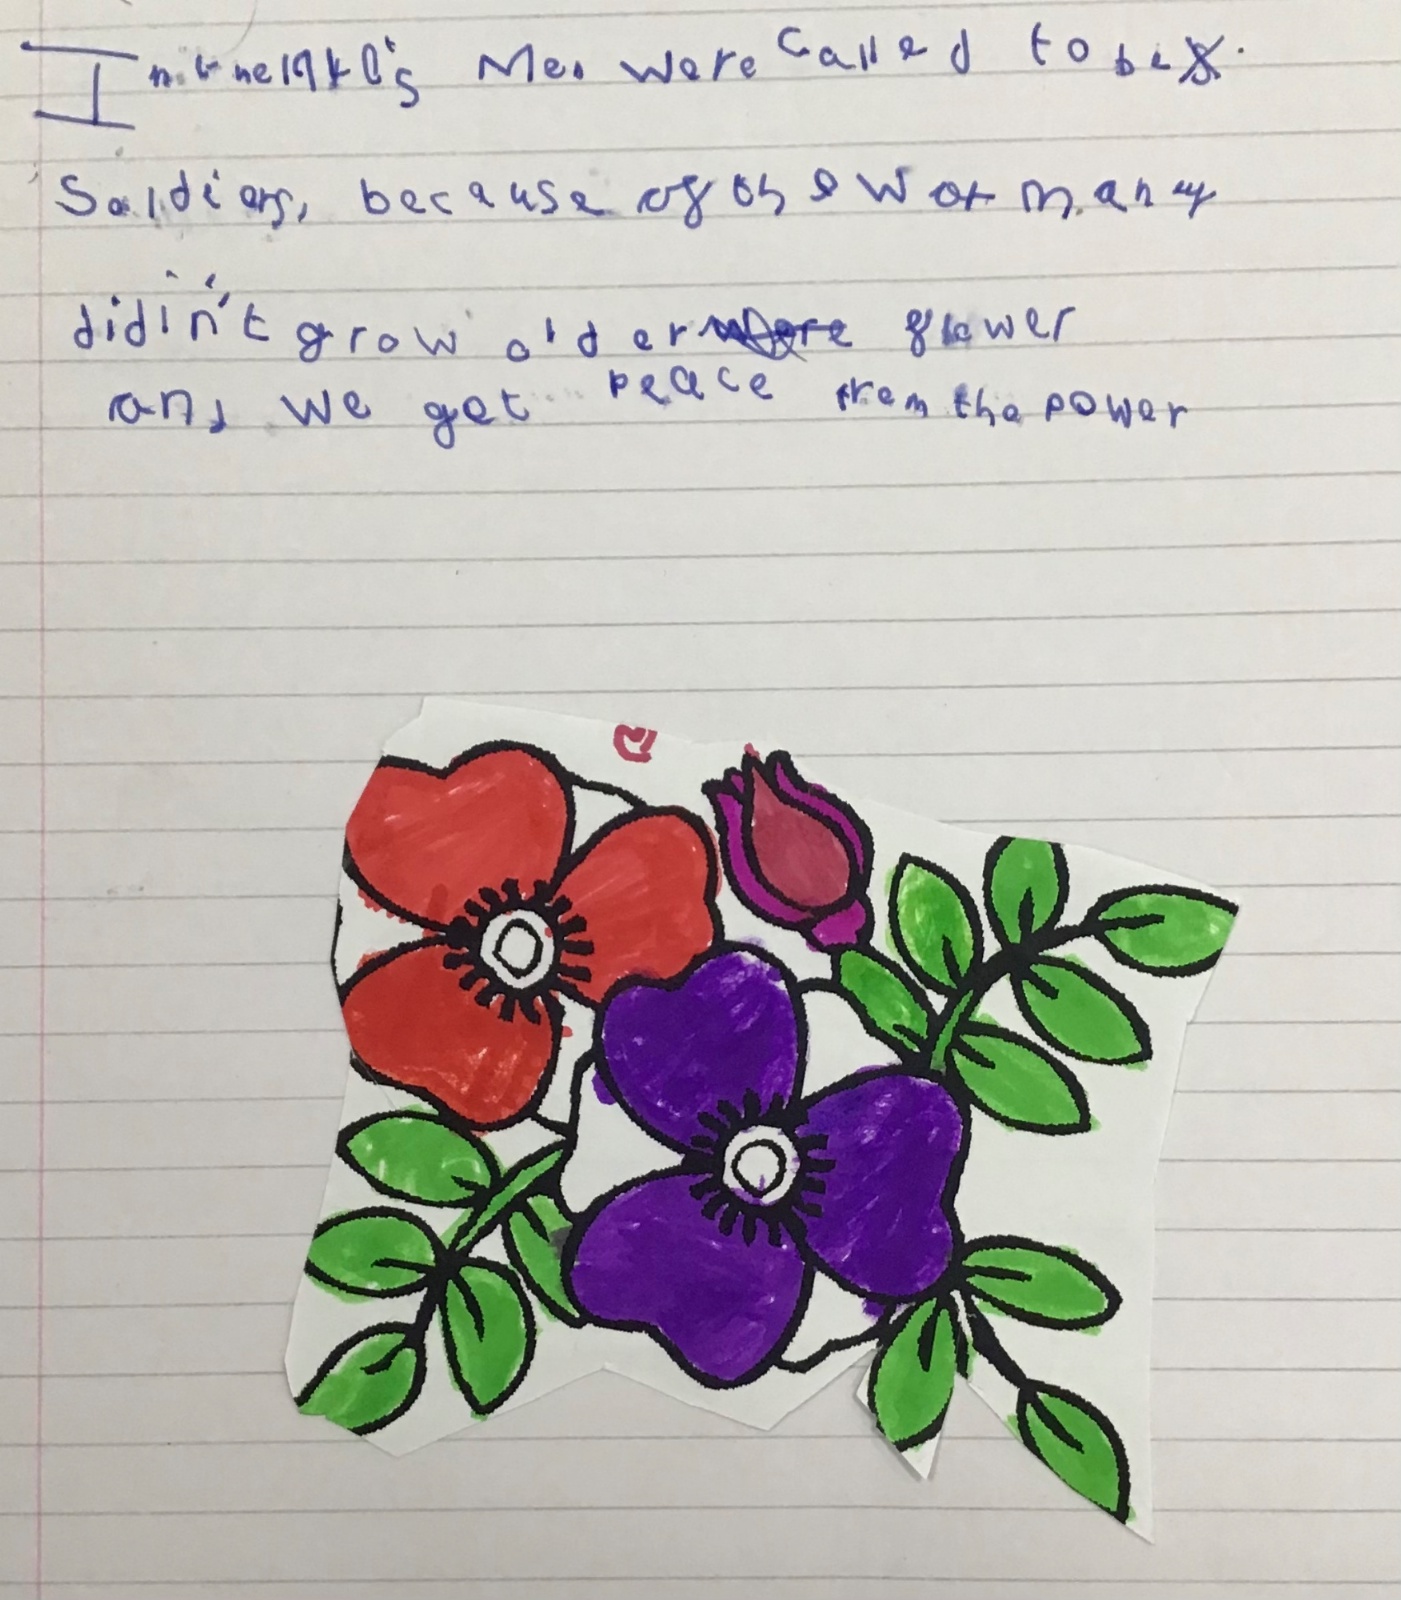 In the 1940's Men were called to be
Soldiers, because of the war many
didin't grow older flower
and we get peace from the power